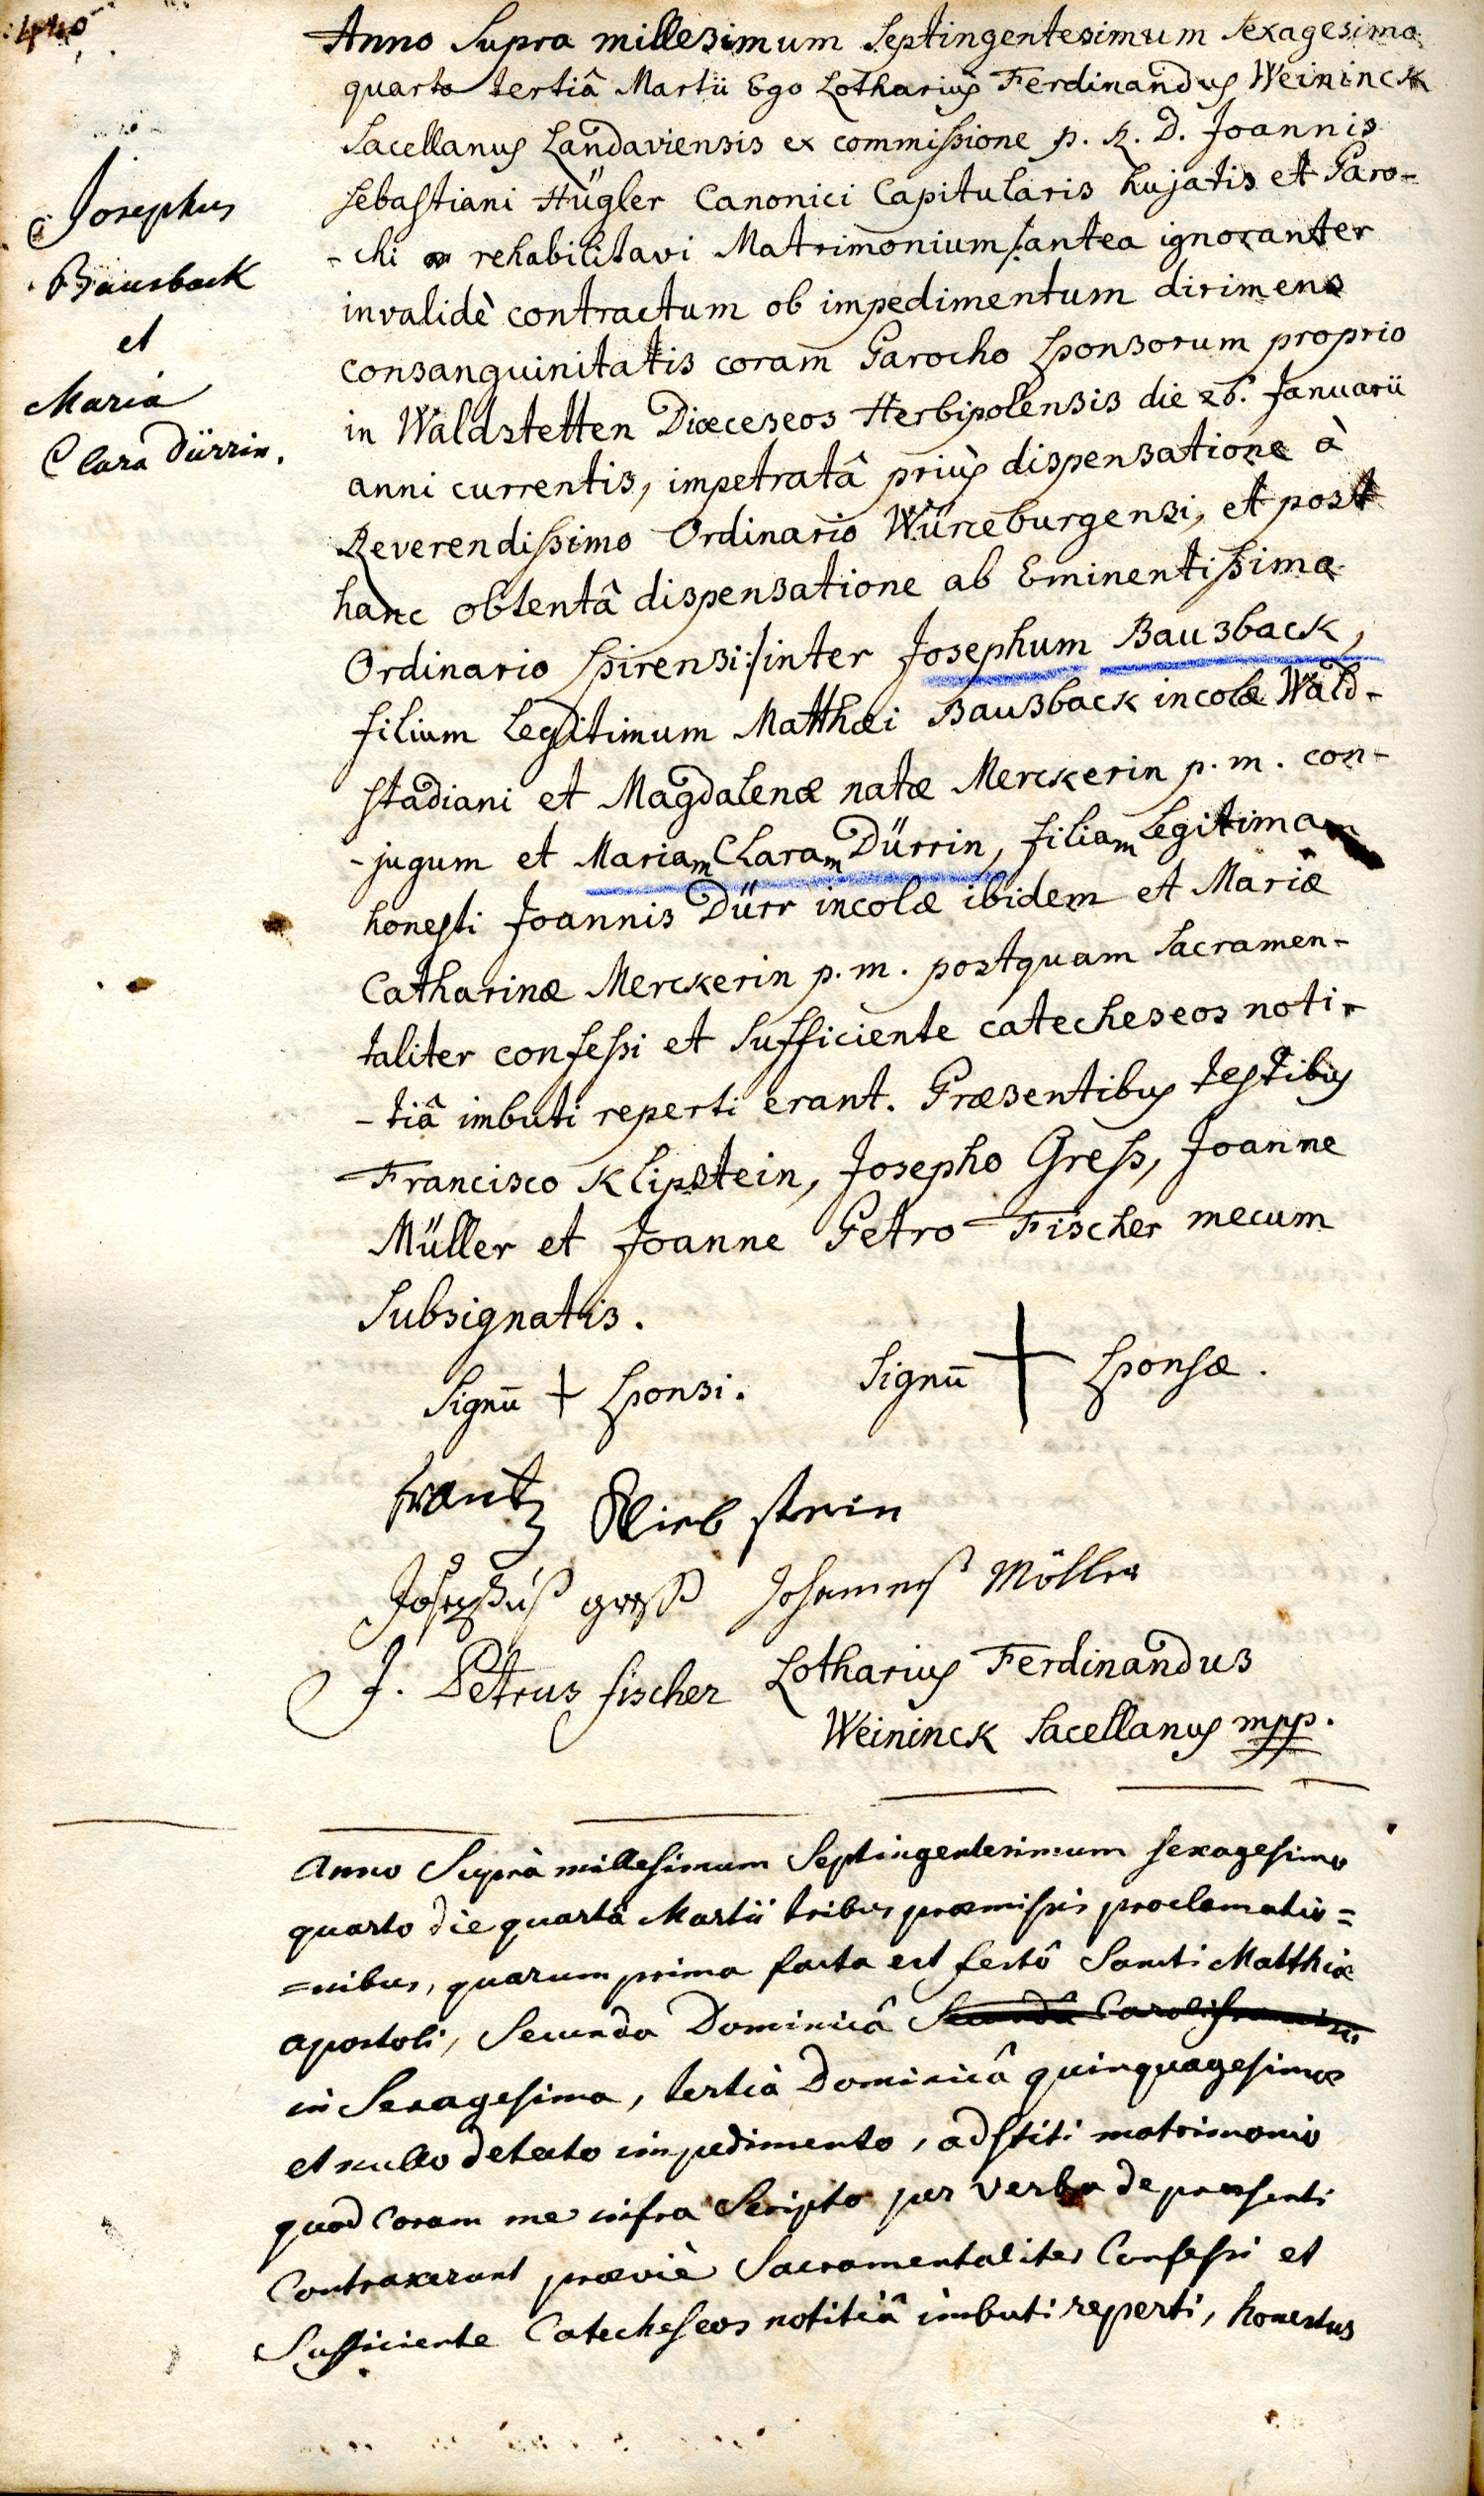 440
Josephus
Bausback
et
Maria
Clara Dürrin.
Anno Supra millesimum Septingentesimum Sexagesimo
quarto tertiâ Martii Ego Lotharius Ferdinandus Weininck
Sacellanus Landaviensis ex commissione p. R. D. Joannis
Sebastiani Hügler Canonici Capitularis hujatis et Paro-
-chi rehabilitavi Matrimonium /: antea ignoranter
invalidè contractum ob impedimentum dirimens
consanguinitatis coram Parocho Sponsorum proprio
in Waldstetten Diœceseos Herbipolensis die 26. Januarii
anni currentis, impetratâ priùs dispensatione à
Reverendissimo Ordinario Würceburgensi, et post
hanc obtentâ dispensatione ab Eminentissimo
Ordinario Spirensi :/ inter Josephum Bausback,
filium Legitimum Matthæi Bausback incolæ Wald-
stadiani et Magdalenæ natæ Merckerin p. m. con-
-jugum et Mariam Claram Dürrin, filiam Legitimam
honesti Joannis Dürr incolæ ibidem et Mariæ
Catharinæ Merckerin p. m. postquam Sacramen-
taliter confessi et Sufficiente catecheseos noti-
-tiâ imbuti reperti erant. Præsentibus testibus
Francisco Klipstein, Josepho Gress, Joanne
Müller et Joanne Petro Fischer mecum
Subsignatis.
Signū + Sponsi. Signū + Sponsæ.
frantz Kliebstein
Josephus greß Johannes Möller
J. Petrus fischer Lotharius Ferdinandus
Weininck Sacellanus mpp.
Anno Suprà millesimum Septingentesimum sexagesimo
quarto die quartâ Martii tribus præmissis proclamatio=
=nibus, quarum prima facta est festô Sancti Matthiæ
apostoli, Secunda Dominicâ
in Sexagesima, tertia Dominicâ quinquagesimæ
et nullo detecto impedimento, adstiti matrimonio
quod Coram me infra Scripto per verba de præsenti
Contraxerunt præviè Sacramentaliter Confessi et
Sufficiente Catecheseos notitiâ imbuti reperti, honestus